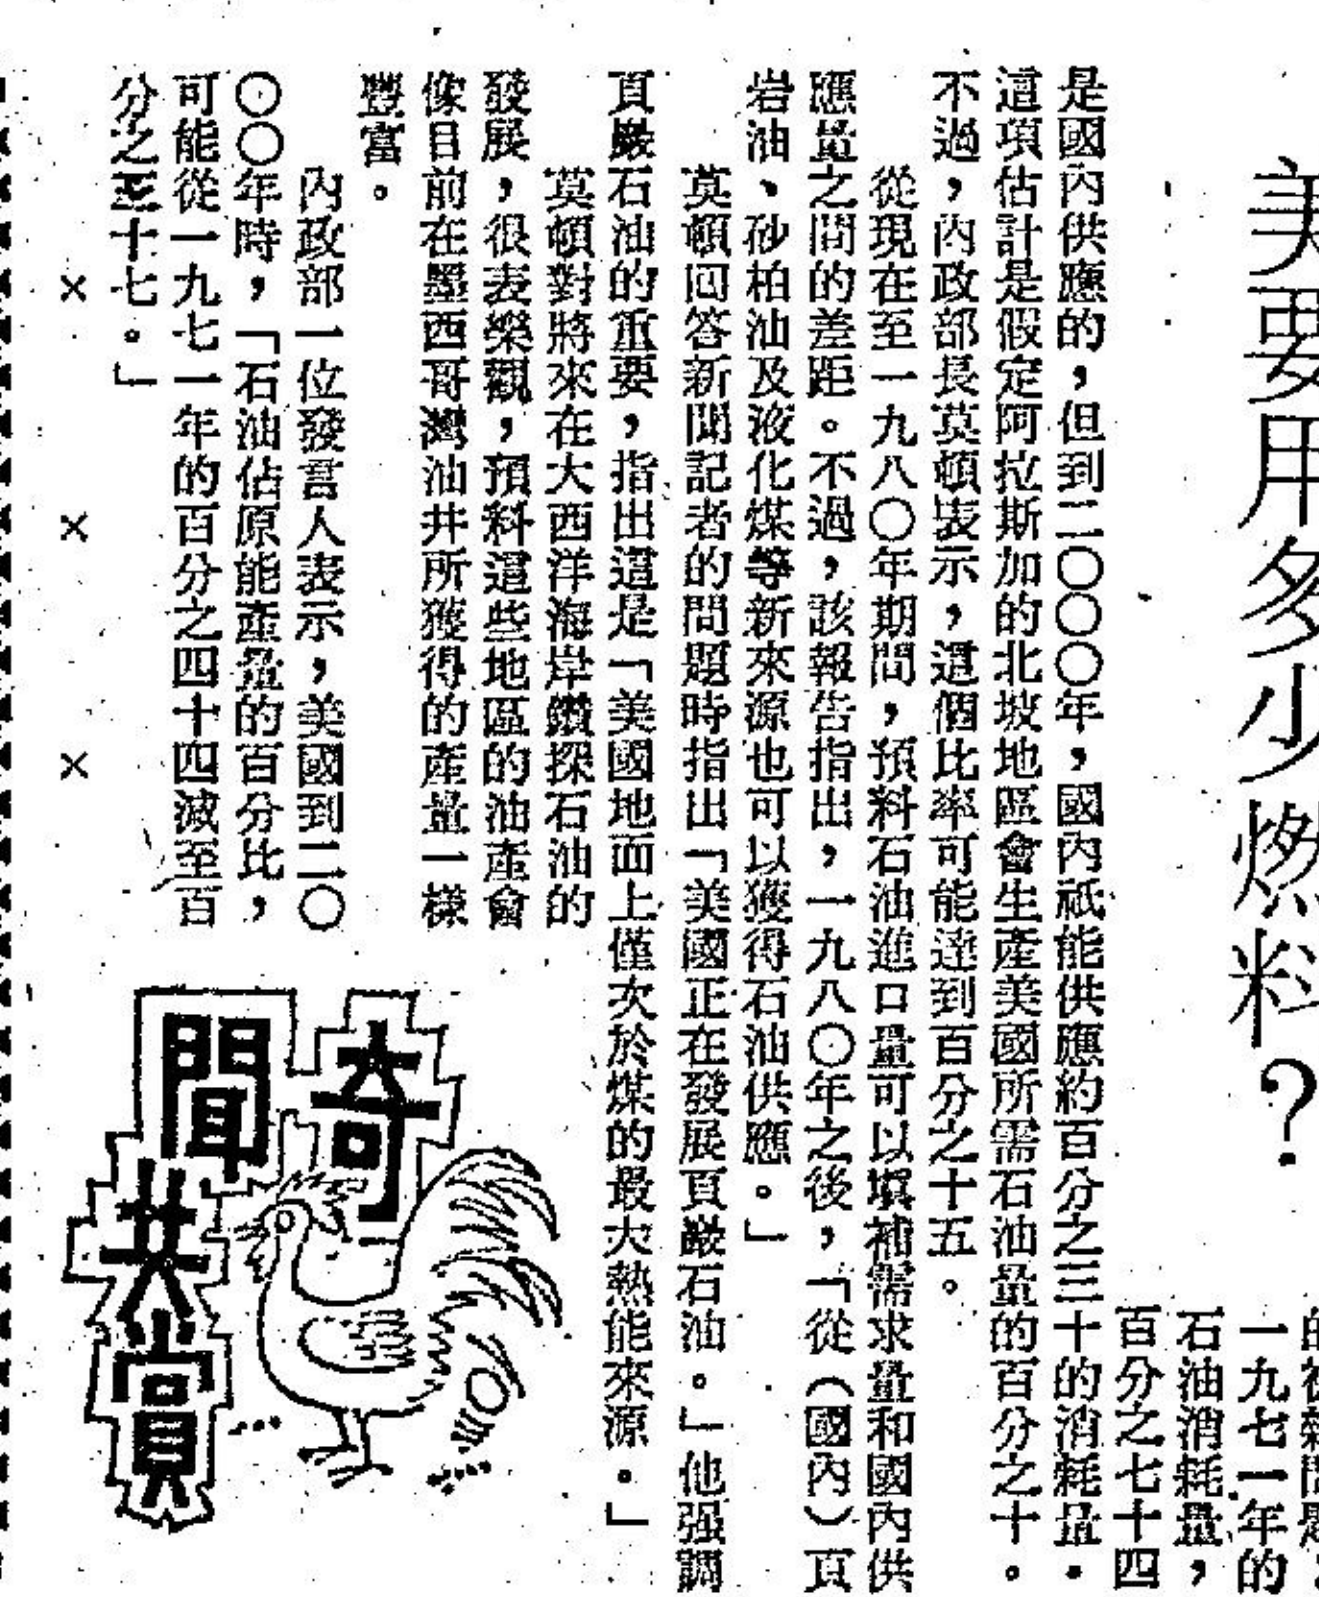 美要用多少燃料?
一九七一年的
石油消耗量，
百分之七十四
是國內供應的，但到二〇〇〇年，國內祇能供應約百分之三十的消耗量。
這項估計是假定阿拉斯加的北坡地區會生產美國所需石油量的百分之十。
不過，內政部長莫頓表示，這個比率可能達到百分之十五。
從現在至一九八〇年期間，預料石油進口量可以填補需求量和國內供
應量之間的差距。不過，該報告指出，一九八〇年之後，「從（國內）頁
岩油、砂柏油及液化煤等新來源也可以獲得石油供應。」
莫頓回答新聞記者的問題時指出「美國正在發展頁巖石油。」他强調
頁巖石油的重要，指出這是「美國地面上僅次於煤的最大熱能來源。」
莫頓對將來在大西洋海岸鑽探石油的
發展，很表樂觀，預料這些地區的油產會
像目前在墨西哥灣油井所獲得的產量一樣
豐富。
內政部一位發言人表示，美國到二〇
〇〇年時，「石油佔原能產量的百分比，
可能從一九七一年的百分之四十四減至百
分之三十七。」
× × ×
奇聞共賞